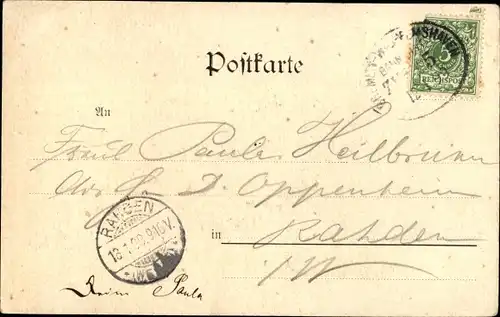 Postkarte
An
Fräul Paula Heilbrunn
Adr. H. D. Oppenheim
in Rahden
i/W
RAHDEN
18.1.99.9-10V.
5
REICHSPOST
Deine Paula